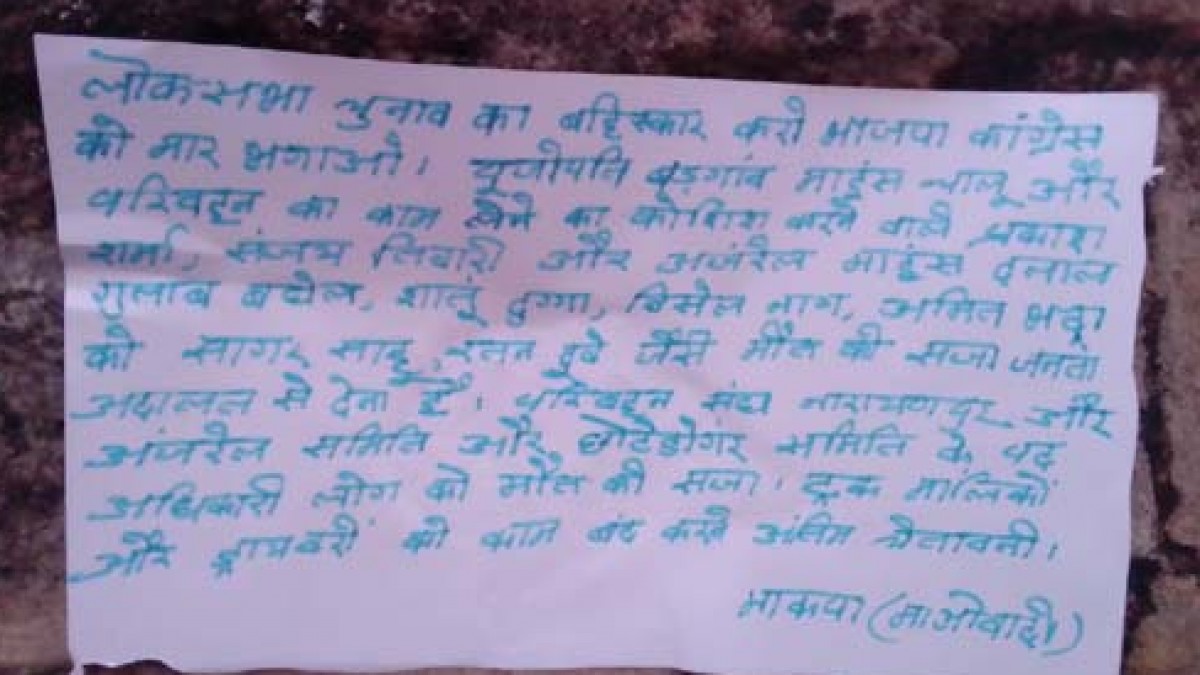 लोकसभा चुनाव का बहिस्कार करो भाजपा कांग्रेस
को मार भगाओ। पूजोपति बूड़गांव माइंस चालू और
परिवहन का काम लेने का कोशिश करने वाले प्रकाश
शर्मा, संजय तिवारी और अंजरेल माइंस दलाल
गुलाब बघेल, शालू दुग्गा, बिसेल नाग, अमित भद्रा
को सागर साहू, रतन दुबे जैसी मौत की सजा जनता
अदालत से देना है। परिवहन संघ नारायणपुर और
अंजरेल समिति और छोटेडोंगर समिति के पद
अधिकारी लोग को मौत की सजा। ट्रक मालिकों
और ड्रायवरों को काम बंद करने अंतिम चेतावनी।
भाकपा (माओवादी)